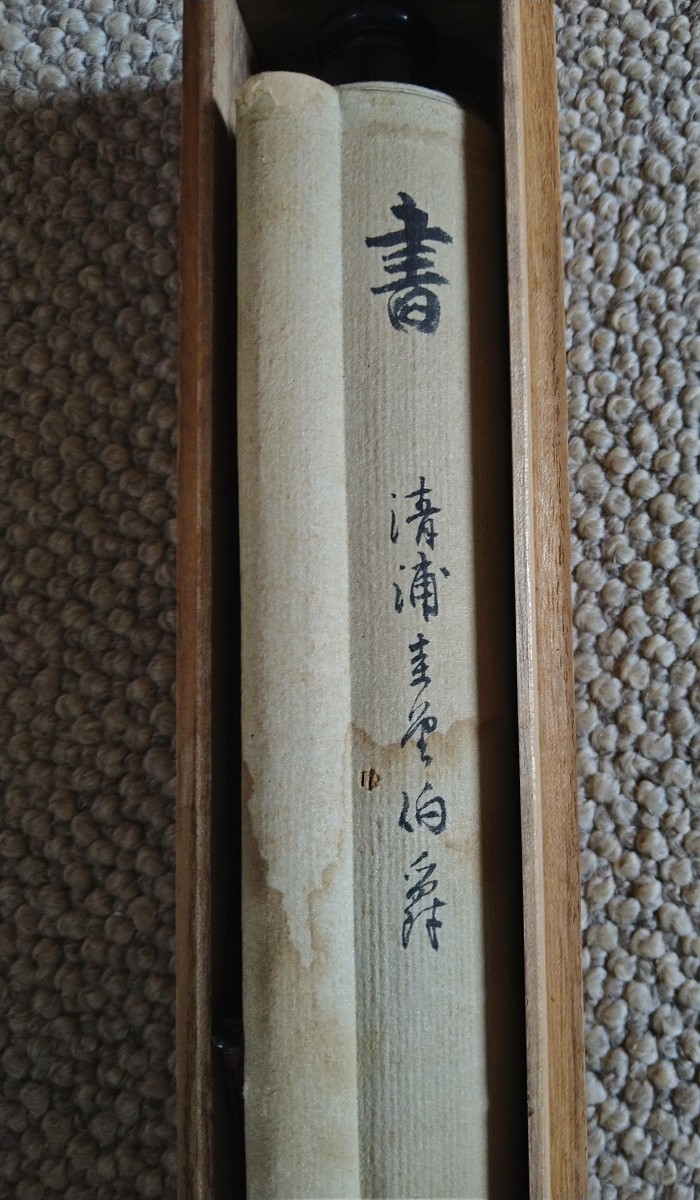 書
清浦圭堂伯爵